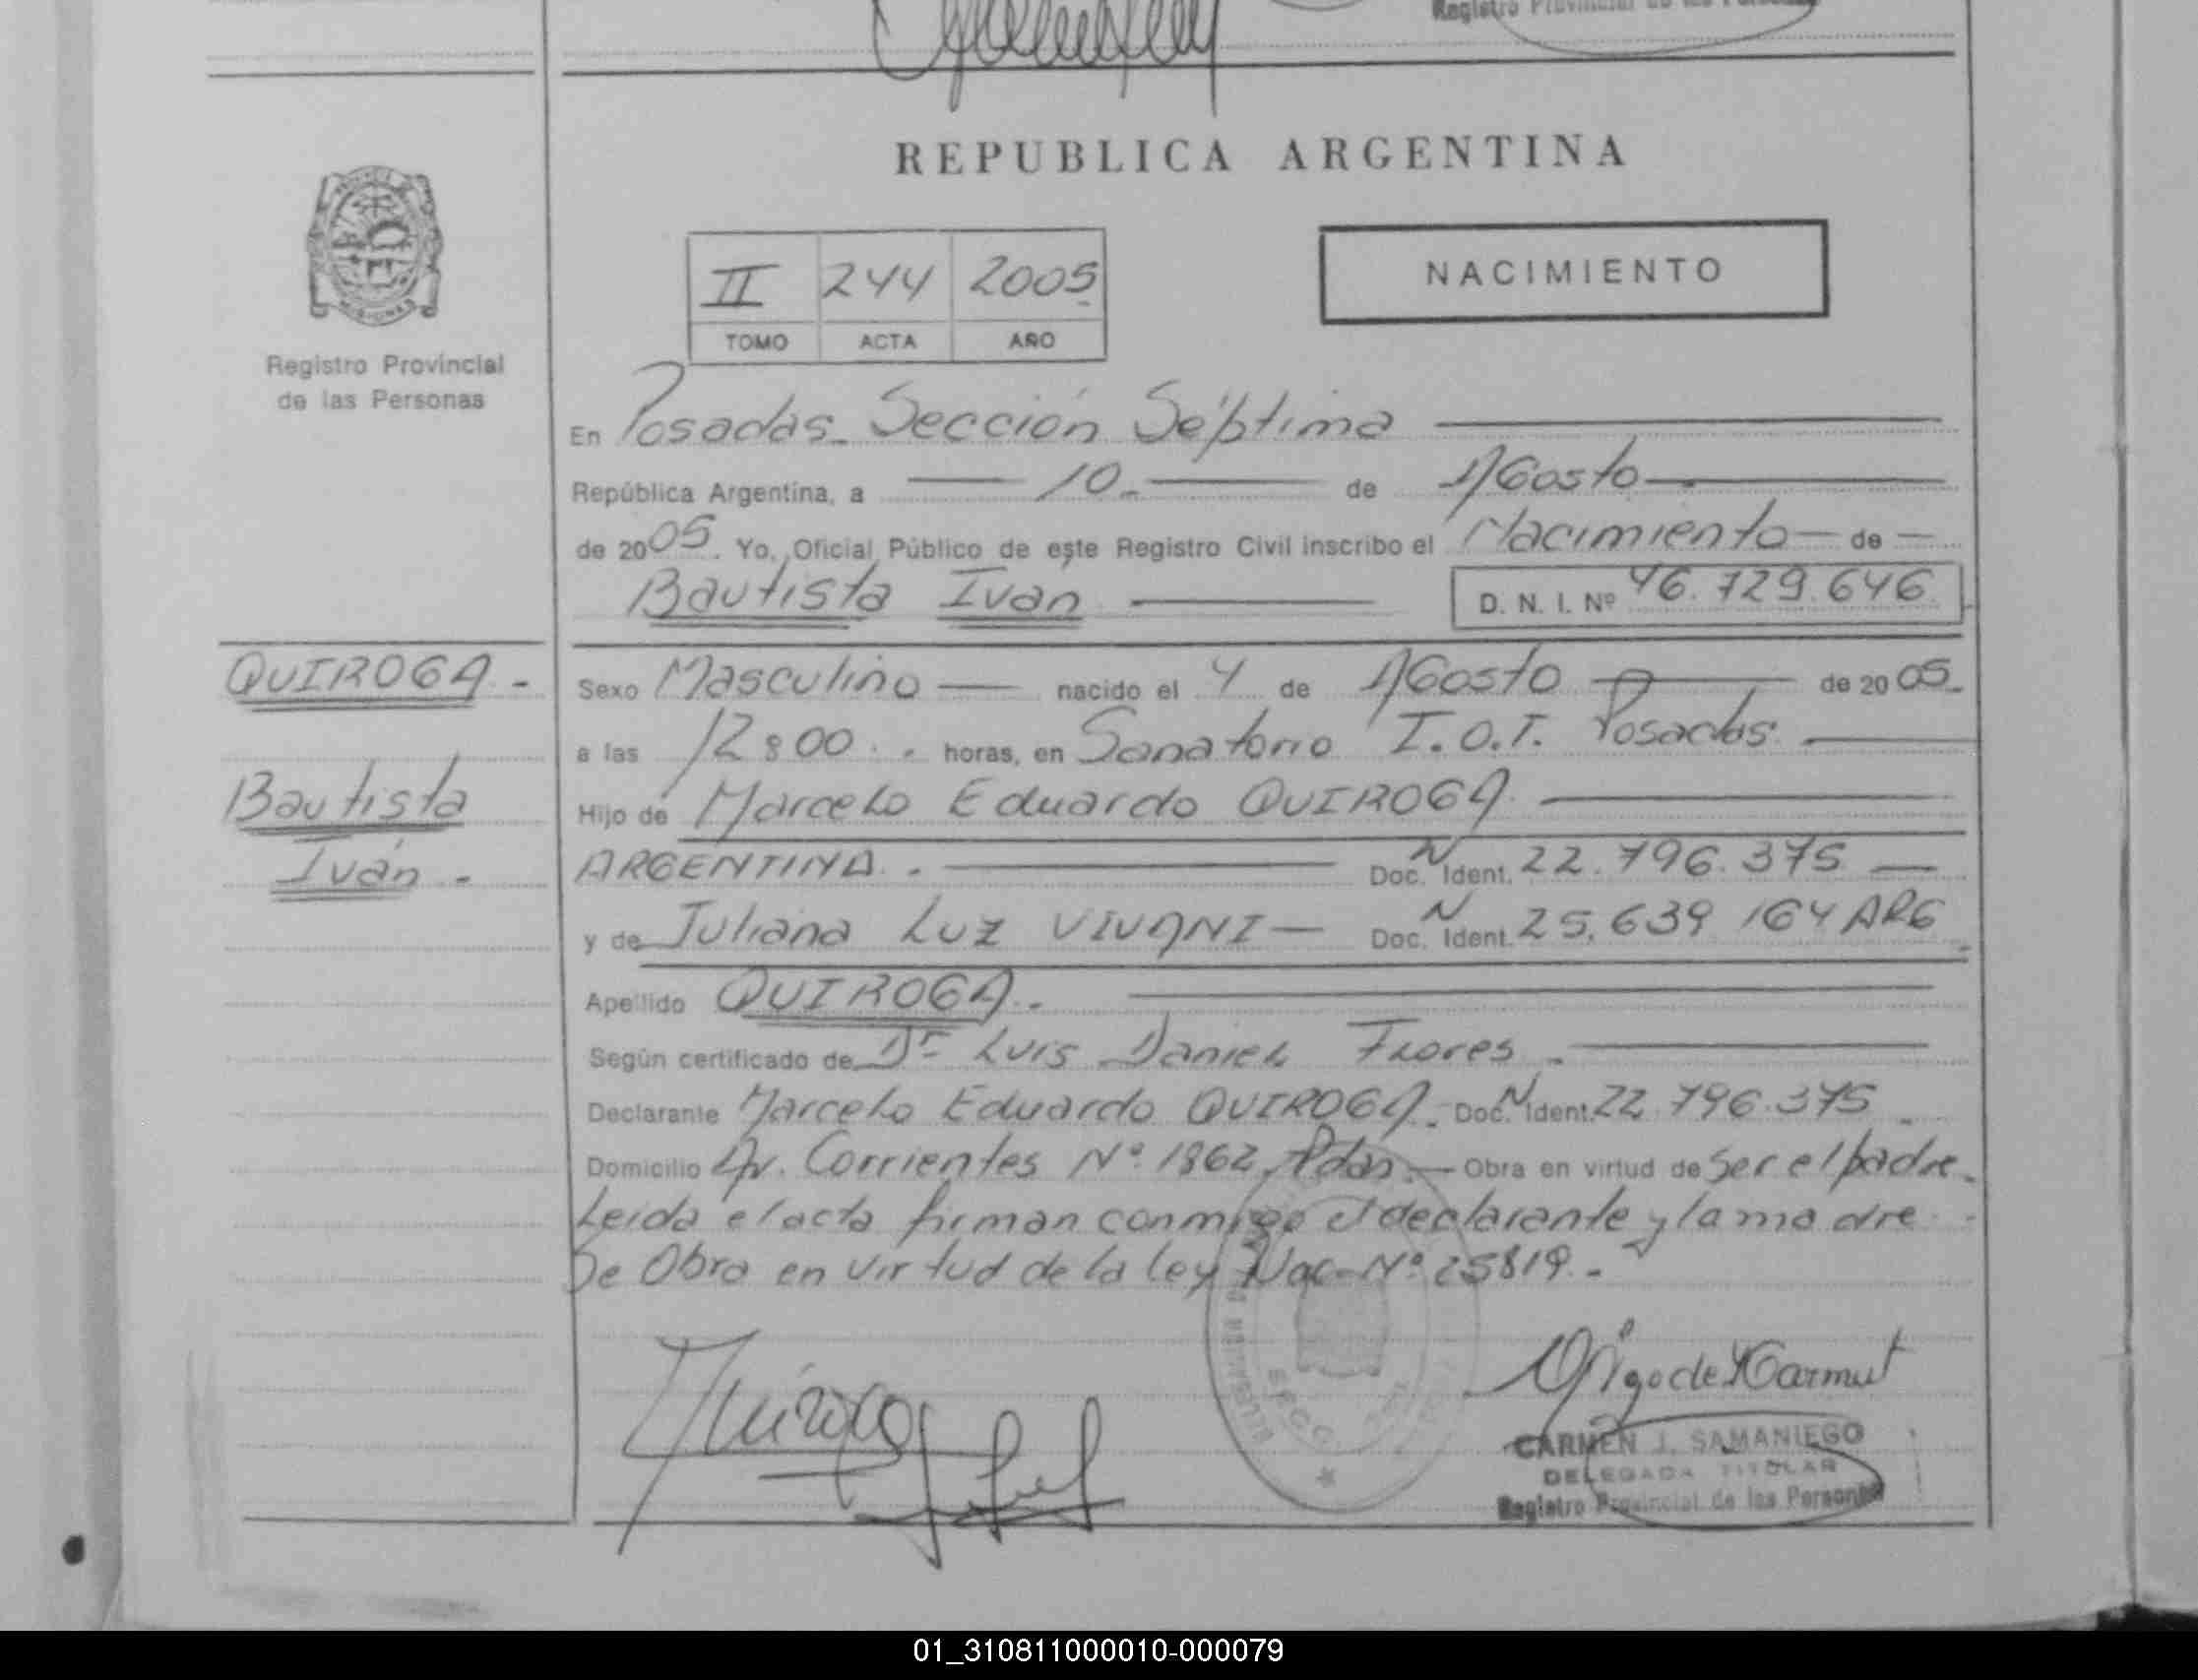 Registro Provincial de las Personas
REPUBLICA ARGENTINA
II 244 2005
TOMO ACTA AÑO
NACIMIENTO
Registro Provincial
de las Personas
En Posadas. Sección Séptima
República Argentina, a 10. de AGosto
de 2005. Yo, Oficial Público de este Registro Civil inscribo el Nacimiento de
Bautista Iván D. N. I. Nº 46.729.646
QUIROGA.-
Bautista
Iván.-
Sexo Masculino nacido el 4 de AGosto de 2005.
a las 12:00 horas, en Sanatorio I.O.T. Posadas
Hijo de Marcelo Eduardo QUIROGA
ARGENTINA. Doc. N Ident. 22.796.375
y de Juliana Luz VIVANI Doc. N Ident. 25.639 164 ARG
Apellido QUIROGA.
Según certificado de Dr Luis Daniel Flores
Declarante Marcelo Eduardo QUIROGA. Doc. N Ident. 22.796.375
Domicilio Av. Corrientes Nº 1862, Pdas. Obra en virtud de Ser el padre.
Leida el acta firman conmigo el declarante y la madre
Se Obra en virtud de la ley Nac. Nº 25819.-
CARMEN J. SAMANIEGO
DELEGADA TITULAR
Registro Provincial de las Personas
01_310811000010-000079